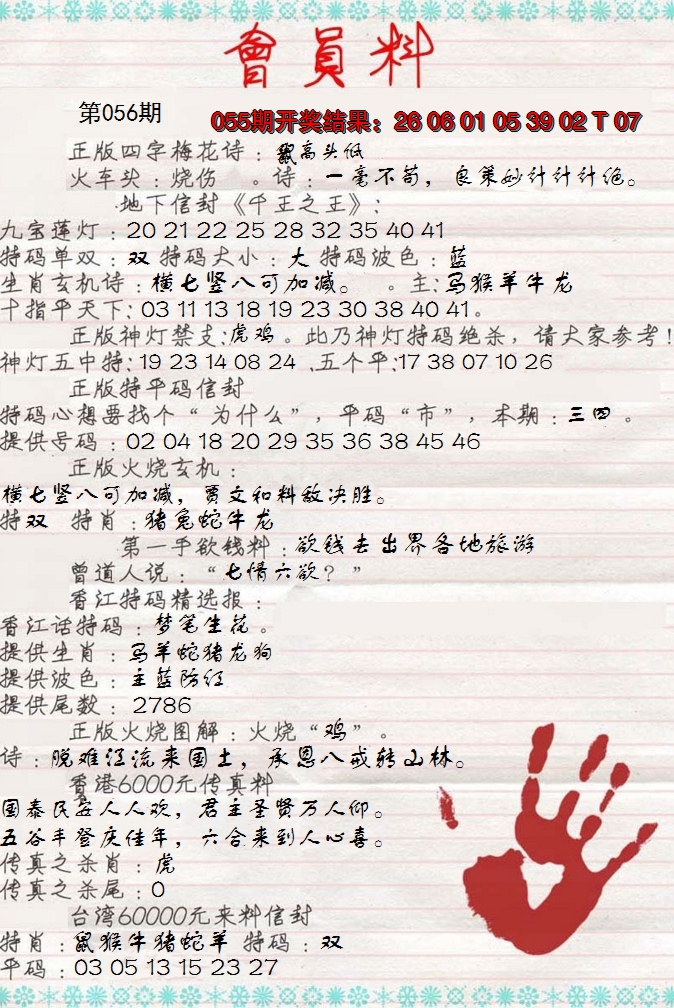 會員料
第056期
055期开奖结果：26 06 01 05 39 02 T 07
正版四字梅花诗：鼠高头低
火车头：烧伤 。诗：一毫不苟，良策妙计计计绝。
地下信封《千王之王》：
九宝莲灯：20 21 22 25 28 32 35 40 41
特码单双：双 特码大小：大 特码波色：蓝
生肖玄机诗：横七竖八可加减。 。主：马猴羊牛龙
十指平天下：03 11 13 18 19 23 30 38 40 41。
正版神灯禁支：虎鸡。此乃神灯特码绝杀，请大家参考！
神灯五中特：19 23 14 08 24 、五个平：17 38 07 10 26
正版特平码信封
特码心想要找个“为什么”，平码“市”，本期：三四。
提供号码：02 04 18 20 29 35 36 38 45 46
正版火烧玄机：
横七竖八可加减，贾文和料敌决胜。
特双 特肖：猪兔蛇牛龙
第一手欲钱料：欲钱去出界各地旅游
曾道人说：“七情六欲？”
香江特码精选报：
香江话特码：梦笔生花。
提供生肖：马羊蛇猪龙狗
提供波色：主蓝防红
提供尾数：2786
正版火烧图解：火烧“鸡”。
诗：脱难江流来国土，承恩八戒转山林。
香港6000元传真料
国泰民安人人欢，君主圣贤万人仰。
五谷丰登庆佳年，六合来到人心喜。
传真之杀肖：虎
传真之杀尾：0
台湾60000元来料信封
特肖：鼠猴牛猪蛇羊 特码：双
平码：03 05 13 15 23 27